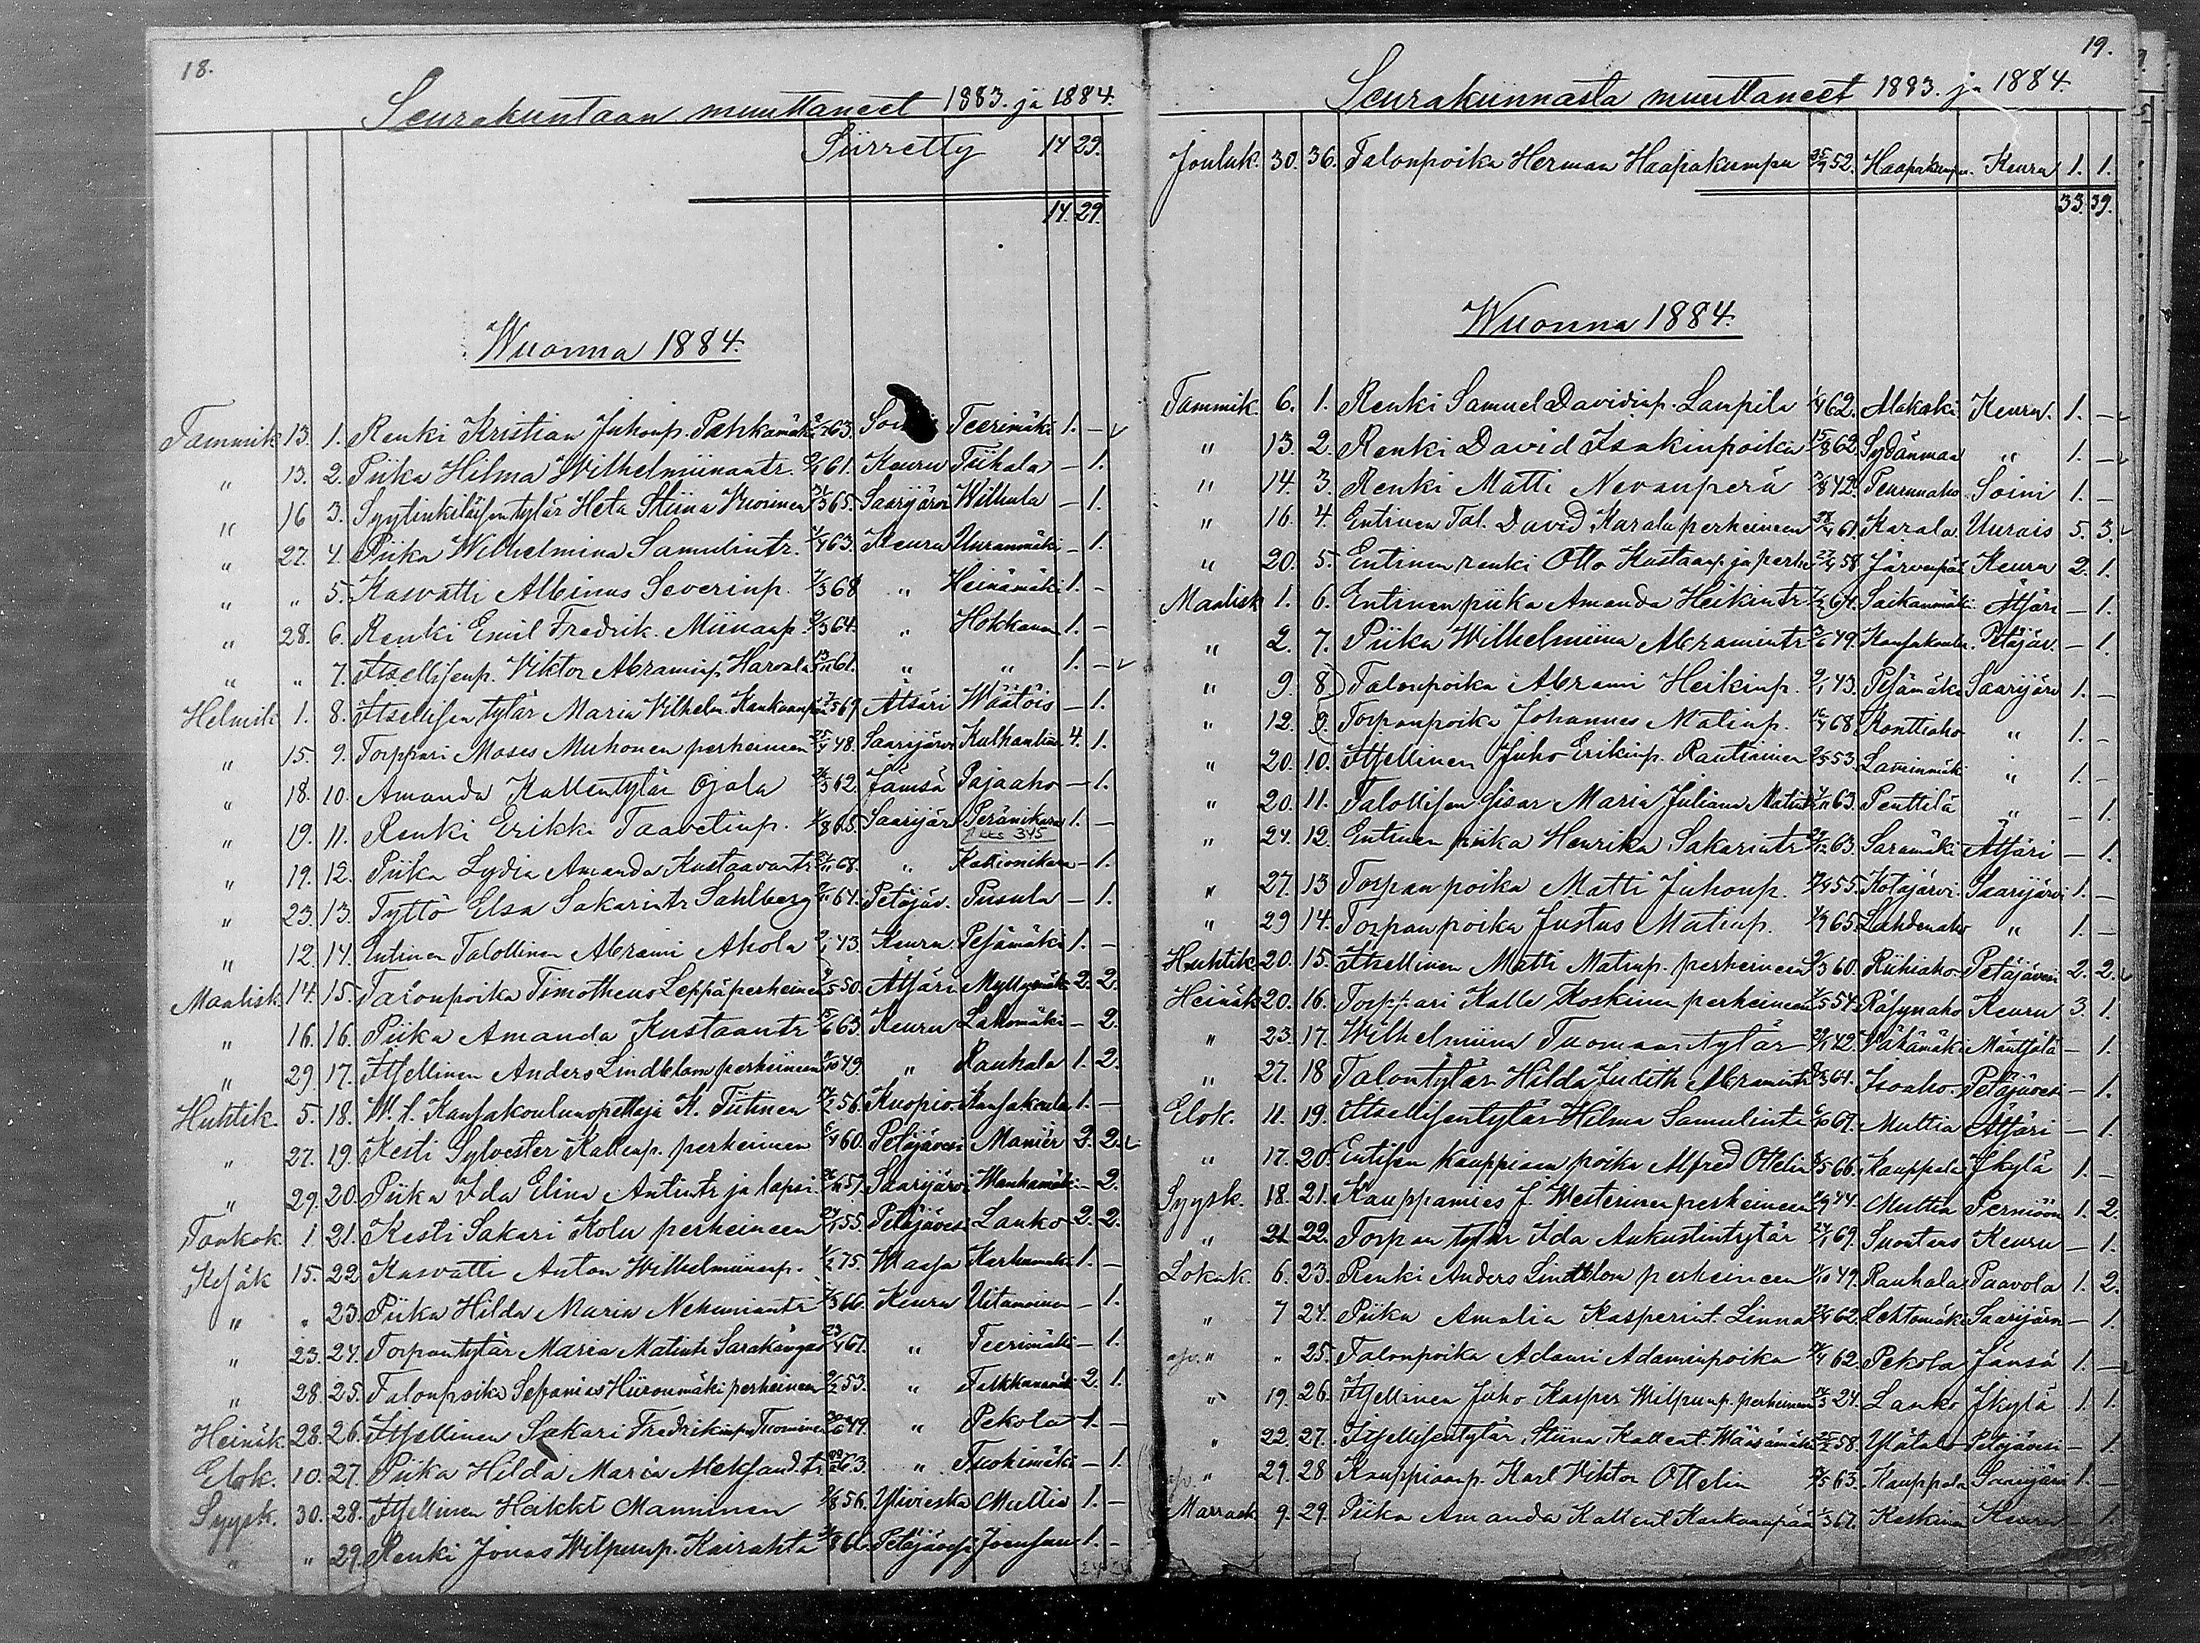 18.
Seurakuntaan muuttaneet 1883. ja 1884.
Siirretty 14 29.
14. 29.
Wuonna 1884.
Tammik 13. 1. Renki Kristian Juhonp. Pahkamäki 63. Teerimäki 1. –
" 13. 2. Piika Hilma Wilhelmiinantr. 61. Keuru Tiihala – 1.
" 16 3. Syytinkiläisen tytär Heta Stiina Vuorinen 65. Saarijärvi Wilhula – 1.
" 27. 4. Piika Wilhelmina Samulintr. 63. Keuru Uuranmäki – 1.
" " 5. Kasvatti Albinus Severinp. 7/3 68 " Heinämäki 1. –
" 28. 6. Renki Emil Fredrik Miinanp. 64. " Hokkanen 1. –
" " 7. Itsellisenp. Viktor Abraminp. Harvala 61. " " 1. –
Helmik 1. 8. Itsellisen tytär Maria Vilhelm. Kankaanpää 69 Ätsäri Wäätöis – 1.
" 15. 9. Torppari Moses Muhonen perheineen 25/4 48. Saarijärvi Kulhanlie 4. 1.
" 18. 10. Amanda Kallentytär Ojala 62. Jämsä Pajaaho – 1.
" 19. 11. Renki Erikki Taavetinp. 65. Saarijär. Peränkura 1. –
kks 345
" 19. 12. Piika Lydia Amanda Kustaavantr. 68. " – 1.
" 23. 13. Tyttö Elsa Sakarintr Sahlberg 64. Petäjäv. Pusula – 1.
" 12. 14. Entinen Talollinen Abrami Ahola 9/1 43. Keuru Pesämäki 1. –
Maalisk. 14. 15. Talonpoika Timotheus Leppä perheineen 50. Ätsäri Myllymäki 2. 2.
" 16. 16. Piika Amanda Kustaantr 63. Keuru Lahomäki – 2.
" 29 17. Itsellinen Anders Lindblom perheineen 49. " Rauhala 1. 2.
Huhtik. 5. 18. W. t. Kansakoulunopettaja K. Tiitinen 56. Kuopio Kansakoulu 1. –
" 27. 19. Kesti Sylvester Kallenp. perheineen 60. Petäjävesi Maniér 2. 2.
" 29. 20. Piika Ida Elina Antintr ja lapsi 57. Saarijärvi Wanhamäki – 2.
Toukok. 1. 21. Kesti Sakari Kolu perheineen 55. Petäjävesi Lanko 2. 2.
Kesäk 15. 22 Kasvatti Anton Wilhelmiinanp. 75. Waasa Karhumäki 1. –
" " 23. Piika Hilda Maria Nehemiantr 66. Keuru – 1.
" 23. 24. Torpantytär Maria Matintr Sarakangas 67. " Teerimäki – 1.
" 28. 25. Talonpoika Sefanias Hiironmäki perheineen 53. " 2. 1.
Heinäk. 28. 26. Itsellinen Sakari Fredrikinp. Tuominen 49. " Pekola 1. –
Elok. 10. 27. Piika Hilda Maria Aleksand.tr 63. " Tuohimäki – 1.
Syysk. 30. 28. Itsellinen Heikki Manninen 56. Ylivieska Multia 1. –
" " 29. Renki Jonas Wilpunp. Kairahta 66. Petäjävesi Joensuu 1. –
19.
Seurakunnasta muuttaneet 1883. ja 1884.
Jouluk. 30. 36. Talonpoika Herman Haapakumpu 52. Haapakumpu. Keuru 1. 1.
33. 39.
Wuonna 1884.
Tammik. 6. 1. Renki Samuel Davidinp. Laupila 62. Alakoski Keuru. 1. –
" 13. 2. Renki David Isakinpoika 15/8 62. Sydänmaa " 1. –
" 14. 3. Renki Matti Nevanperä 42. Peurunaho Soini 1. –
" 16. 4. Entinen Tal. David Karala perheineen 61. Karala Uurais 5. 3.
" 20. 5. Entinen renki Otto Kustaanp. ja perhe 58. Järvenpää Keuru 2. 1.
Maalisk 1. 6. Entinen piika Amanda Heikintr 64. Saikanmäki Ätsäri – 1.
" 2. 7. Piika Wilhelmiina Abramintr 49. Kansakoulu. Petäjäv. – 1.
" 9. 8. Talonpoika Abrami Heikinp. 9/1 43. Pesämäki Saarijärvi 1. –
" 12. 9. Torpanpoika Johannes Matinp. 68 Konttiaho " 1. –
" 20. 10. Itsellinen Juho Erikinp. Rautiainen 53. Laminmäki " 1. –
" 20. 11. Talollisen sisar Maria Juliana Matintr 63. Penttilä " – 1.
" 24. 12. Entinen piika Henrika Sakarintr 63. Saramäki Ätsäri – 1.
" 27. 13 Torpanpoika Matti Juhonp. 55. Kotajärvi Saarijärvi 1. –
" 29 14. Torpanpoika Justus Matinp. 65. Lahdenaho " 1. –
Huhtik. 20. 15. Itsellinen Matti Matinp. perheineen 60. Riihiaho Petäjävesi 2. 2.
Heinäk 20. 16. Torppari Kalle Koskinen perheineen 54. Räsynaho Keuru 3. 1.
" 23. 17. Wilhelmiina Tuomaantytär 42. Vähämäki Mäntsälä – 1.
" 27. 18 Talontytär Hilda Judith Abramintr 64. Isoaho Petäjävesi – 1.
Elok. 11. 19. Itsellisentytär Hilma Samulintr 69. Multia Ätsäri – 1.
" 17. 20. Entisen kauppiaan poika Alfred Ottelin 66. Kauppala Jkylä 1. –
Syysk. 18. 21. Kauppamies J. Westerinen perheineen 44. Multia Perniöön 1. 2.
" 21 22. Torpan tytär Ida Aukustintytär 69. Suontaus Keuru – 1.
Lokak. 6. 23. Renki Anders Lindblom perheineen 49. Rauhala Paavola 1. 2.
" 7 24. Piika Amalia Kasperint. Linna 62. Lehtomäki Saarijärvi – 1.
" " 25. Talonpoika Adami Adaminpoika 62. Pekola Jämsä 1. –
" 19. 26. Itsellinen Juho Kasper Wilpunp. perheineen 24. Lanko Jkylä 1. 1.
" 22. 27. Itsellisentytär Stiina Kallent. Määsämäki 58. Ylätalo Petäjävesi – 1.
" 29. 28 Kauppiaanp. Karl Viktor Ottelin 63. Kauppala Saarijärvi 1. –
Marrask 9. 29. Piika Amanda Kallent. Kankaanpää 67. Keskinen Keuru – 1.